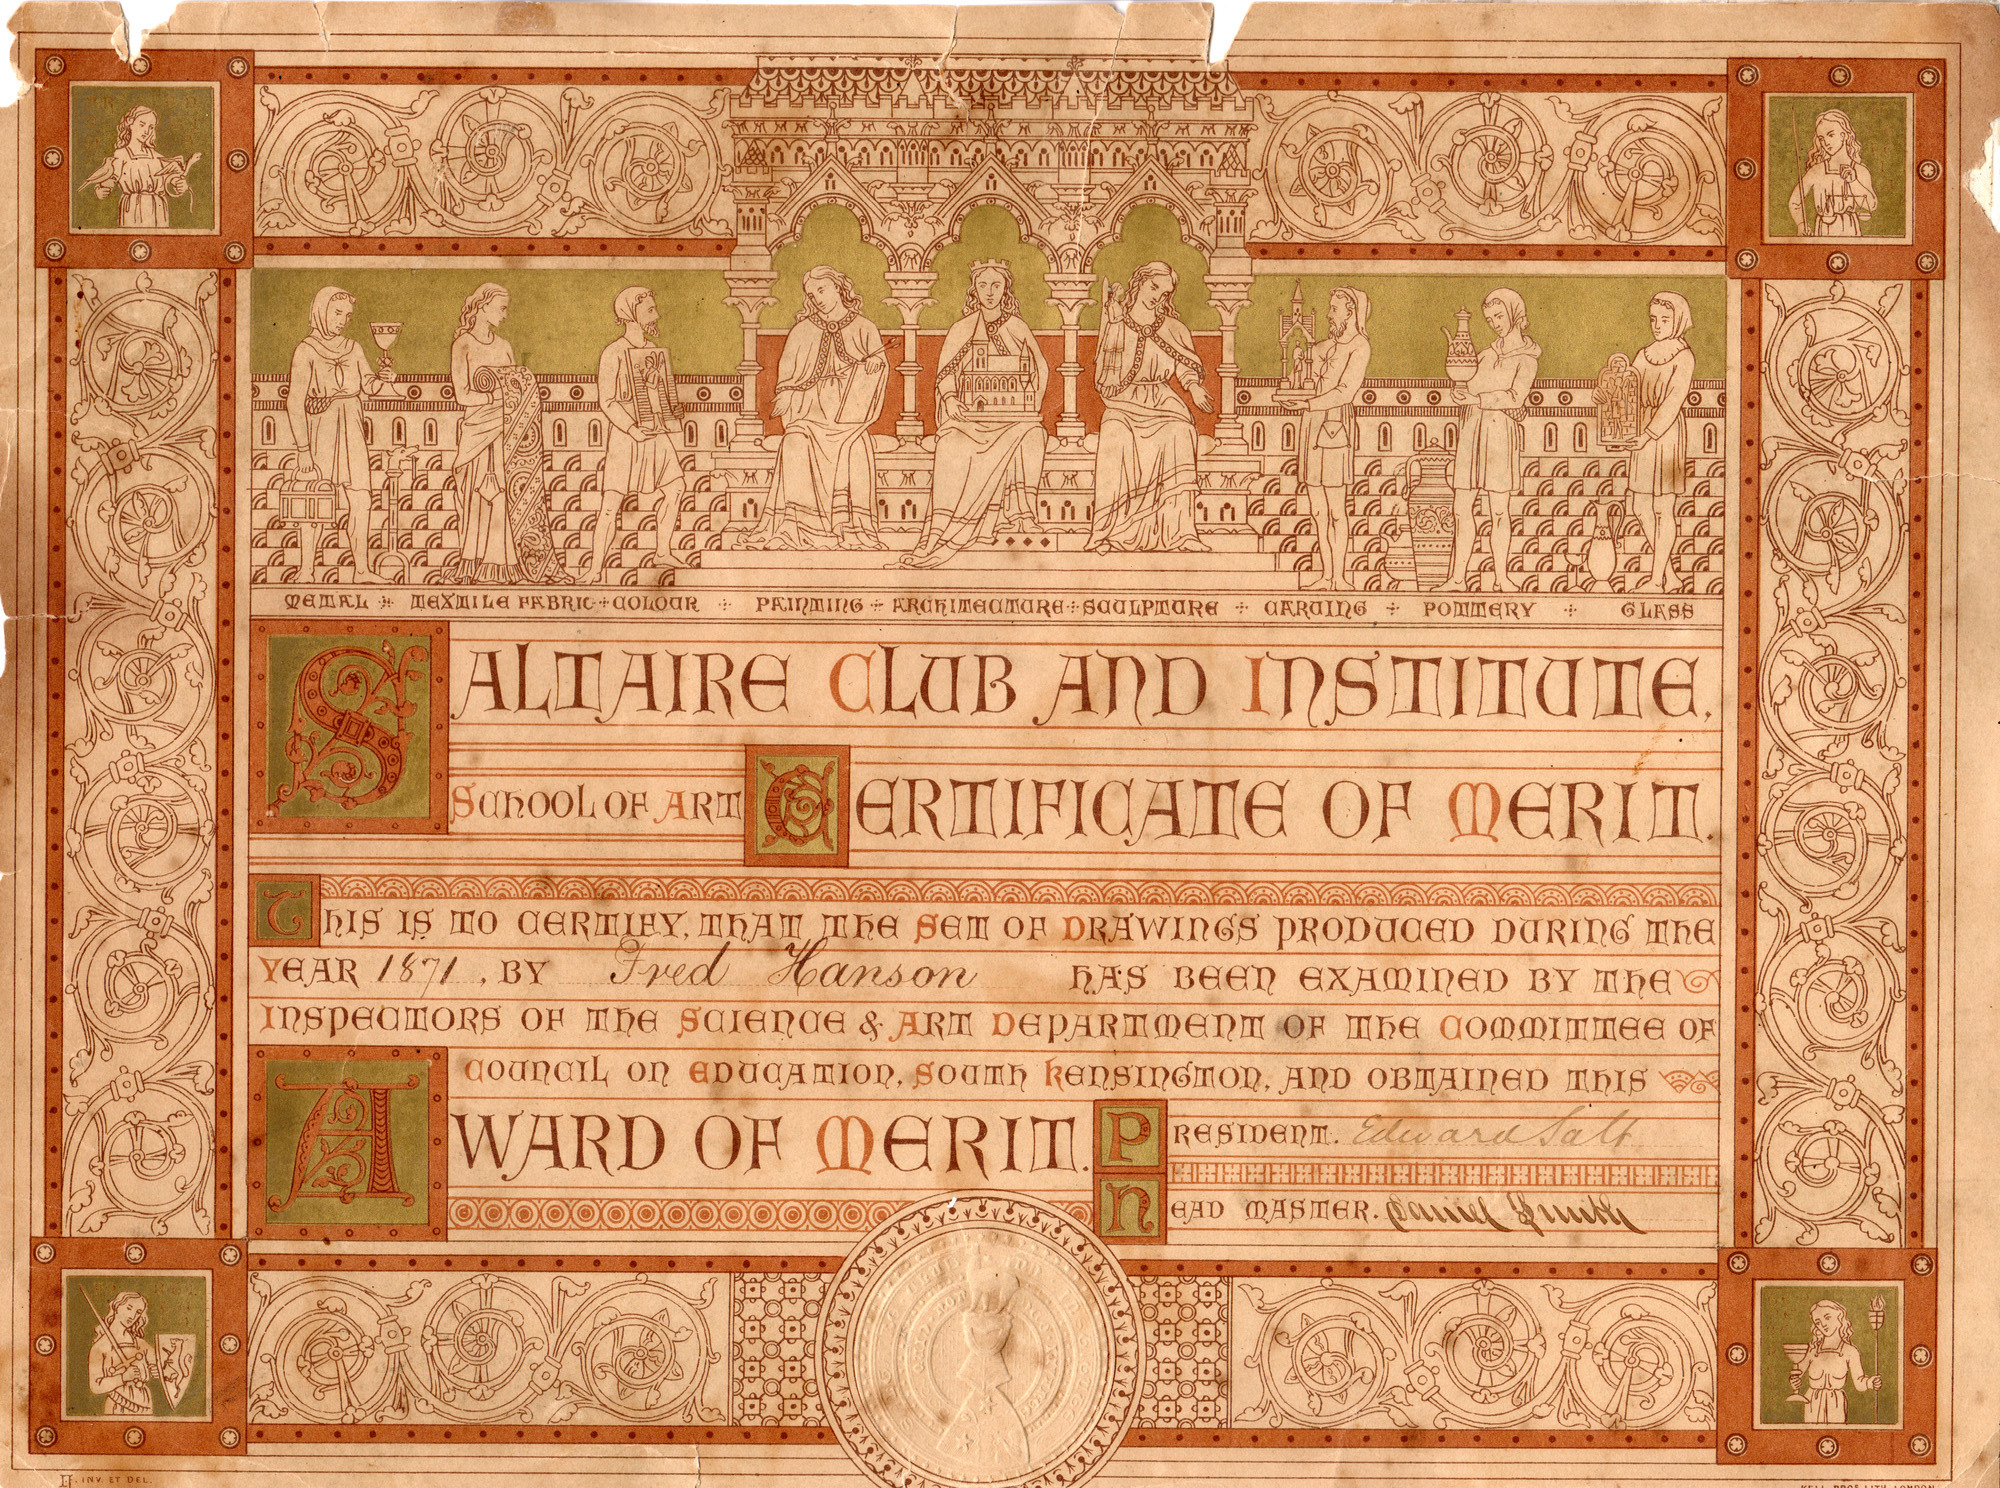 METAL TEXTILE FABRIC COLOUR PAINTING ARCHITECTURE SCULPTURE CARVING POTTERY GLASS
SALTAIRE CLUB AND INSTITUTE.
SCHOOL OF ART CERTIFICATE OF MERIT.
THIS IS TO CERTIFY, THAT THE SET OF DRAWINGS PRODUCED DURING THE
YEAR 1871, BY Fred Hanson HAS BEEN EXAMINED BY THE
INSPECTORS OF THE SCIENCE & ART DEPARTMENT OF THE COMMITTEE OF
COUNCIL ON EDUCATION, SOUTH KENSINGTON, AND OBTAINED THIS
AWARD OF MERIT. PRESIDENT. Edward Salt
HEAD MASTER. Daniel Smith
INV. ET DEL.
KELL BROS LITH. LONDON